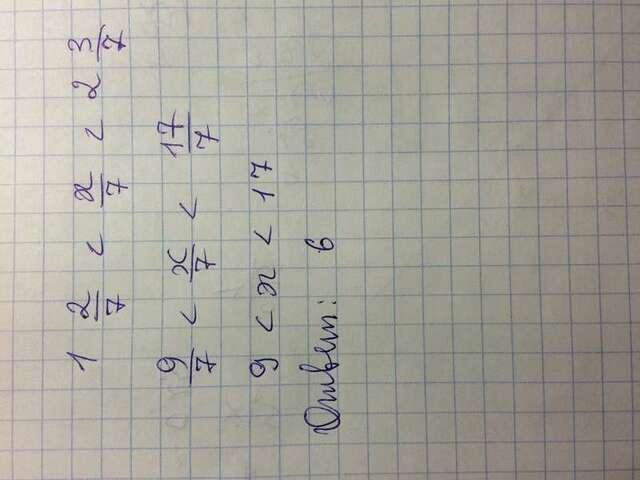 1 2/7 < x/7 < 2 3/7
9/7 < x/7 < 17/7
9 < x < 17
Ответ: 6